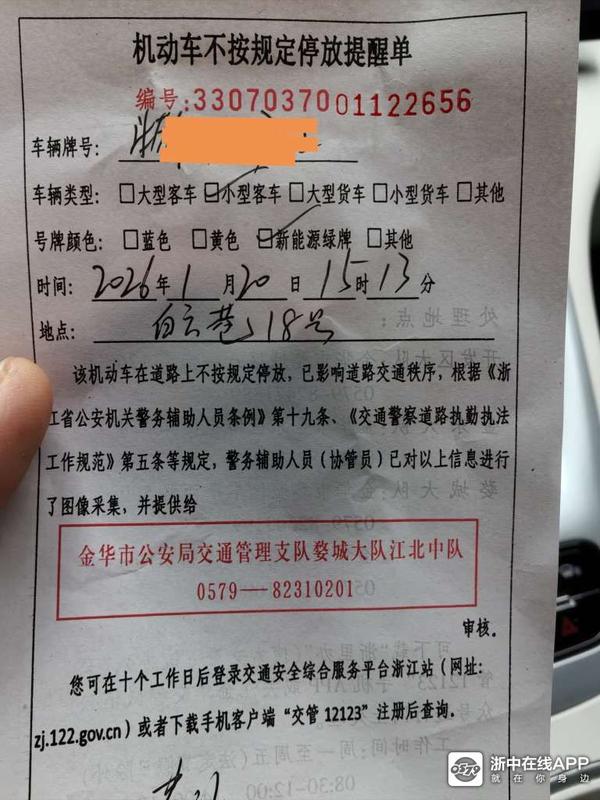 机动车不按规定停放提醒单
编号:3307037001122656
车辆牌号: 浙
车辆类型: □大型客车 ☑小型客车 □大型货车 □小型货车 □其他
号牌颜色: □蓝色 □黄色 ☑新能源绿牌 □其他
时间: 2026年1月20日15时13分
地点: 白云巷18号
该机动车在道路上不按规定停放，已影响道路交通秩序，根据《浙
江省公安机关警务辅助人员条例》第十九条、《交通警察道路执勤执法
工作规范》第五条等规定，警务辅助人员（协管员）已对以上信息进行
了图像采集，并提供给
金华市公安局交通管理支队婺城大队江北中队
0579—82310201
审核.
您可在十个工作日后登录交通安全综合服务平台浙江站（网址:
zj.122.gov.cn）或者下载手机客户端“交管 12123”注册后查询.
浙中在线APP
就在你身边